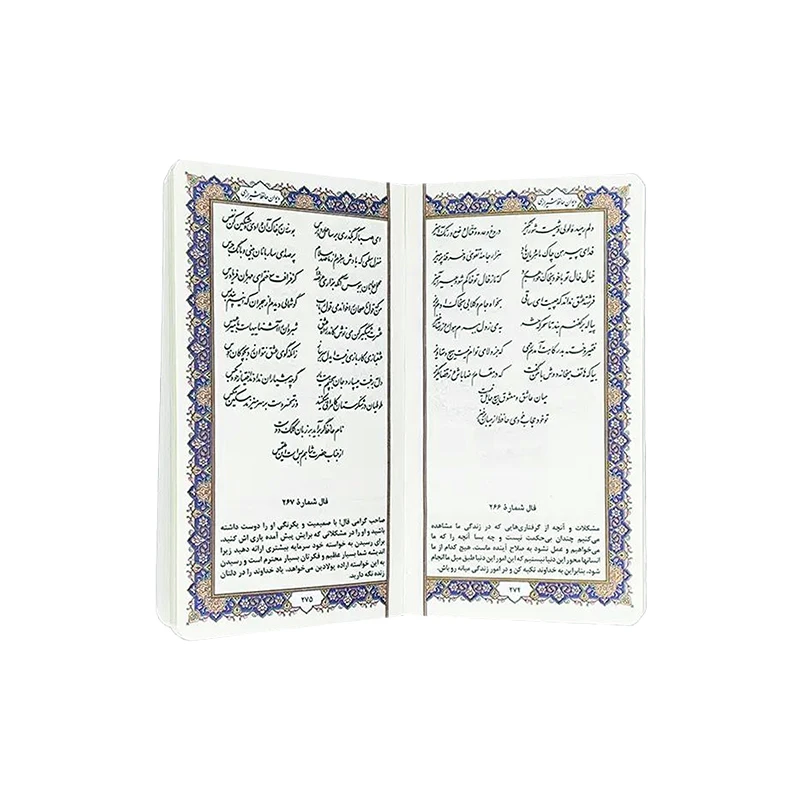 دیوان حافظ شیرازی
دلم رمیدهٔ لولی‌وشیست شورانگیز دروغ وعده و قتال وضع و رنگ آمیز
فدای پیرهن چاک ماهرویان باد هزار جامه تقوی و خرقه پرهیز
خیال خال تو با خود به خاک خواهم برد که تا ز خال تو خاکم شود عبیرآمیز
فرشته عشق نداند که چیست ای ساقی بخواه جام و گلابی به خاک آدم ریز
پیاله بر کفنم بند تا سحرگه حشر به می ز دل ببرم هول روز رستاخیز
فقیر و خسته به درگاهت آمدم رحمی که جز ولای توام نیست هیچ دستاویز
بیا که هاتف میخانه دوش با من گفت که در مقام رضا باش و از قضا مگریز
میان عاشق و معشوق هیچ حایل نیست
تو خود حجاب خودی حافظ از میان برخیز
فال شمارهٔ ۲۶۶
مشکلات و آنچه از گرفتاری‌هایی که در زندگی ما مشاهده
می‌کنیم چندان بی‌حکمت نیست و چه بسا آنچه را که ما
می‌خواهیم و عمل نشود به صلاح آینده ماست. هیچ کدام از ما
انسانها محور این دنیا نیستیم که این امور این دنیا طبق میل ما انجام
شود، بنابراین به خداوند تکیه کن و در امور زندگی میانه رو باش.
۲۷۴
دیوان حافظ شیرازی
ای صبا گر بگذری بر ساحل رود ارس بوسه زن بر خاک آن وادی و مشکین کن نفس
منزل سلمی که بادش هر دم از ما صد سلام پر صدای ساربانان بینی و بانگ جرس
محمل جانان ببوس آنگه به زاری عرضه دار کز فراقت سوختم ای مهربان فریاد رس
من که قول ناصحان را خواندمی قول رباب گوشمالی دیدم از هجران که اینم پند بس
عشرت شبگیر کن می نوش کاندر راه عشق شبروان را آشنایی‌هاست با میر عسس
عشقبازی کار بازی نیست ای دل سر بباز زانکه گوی عشق نتوان زد به چوگان هوس
دل به رغبت می‌سپارد جان به چشم مست یار گرچه هشیاران ندادند اختیار خود به کس
طوطیان در شکرستان کامرانی می‌کنند وز تحسر دست بر سر می‌زند مسکین مگس
نام حافظ گر برآید بر زبان کلک دوست
از جناب حضرت شاهم بس است این ملتمس
فال شمارهٔ ۲۶۷
صاحب گرامی فال! با صمیمیت و یکرنگی او را دوست داشته
باشید و او را در مشکلاتی که برایش پیش آمده یاری اش کنید.
برای رسیدن به خواسته خود سرمایه بیشتری ارائه دهید زیرا
اندیشه شما بسیار عظیم و فکرتان بسیار محترم است و رسیدن
به این خواسته اراده پولادین می‌خواهد، یاد خداوند را در دلتان
زنده نگه دارید.
۲۷۵